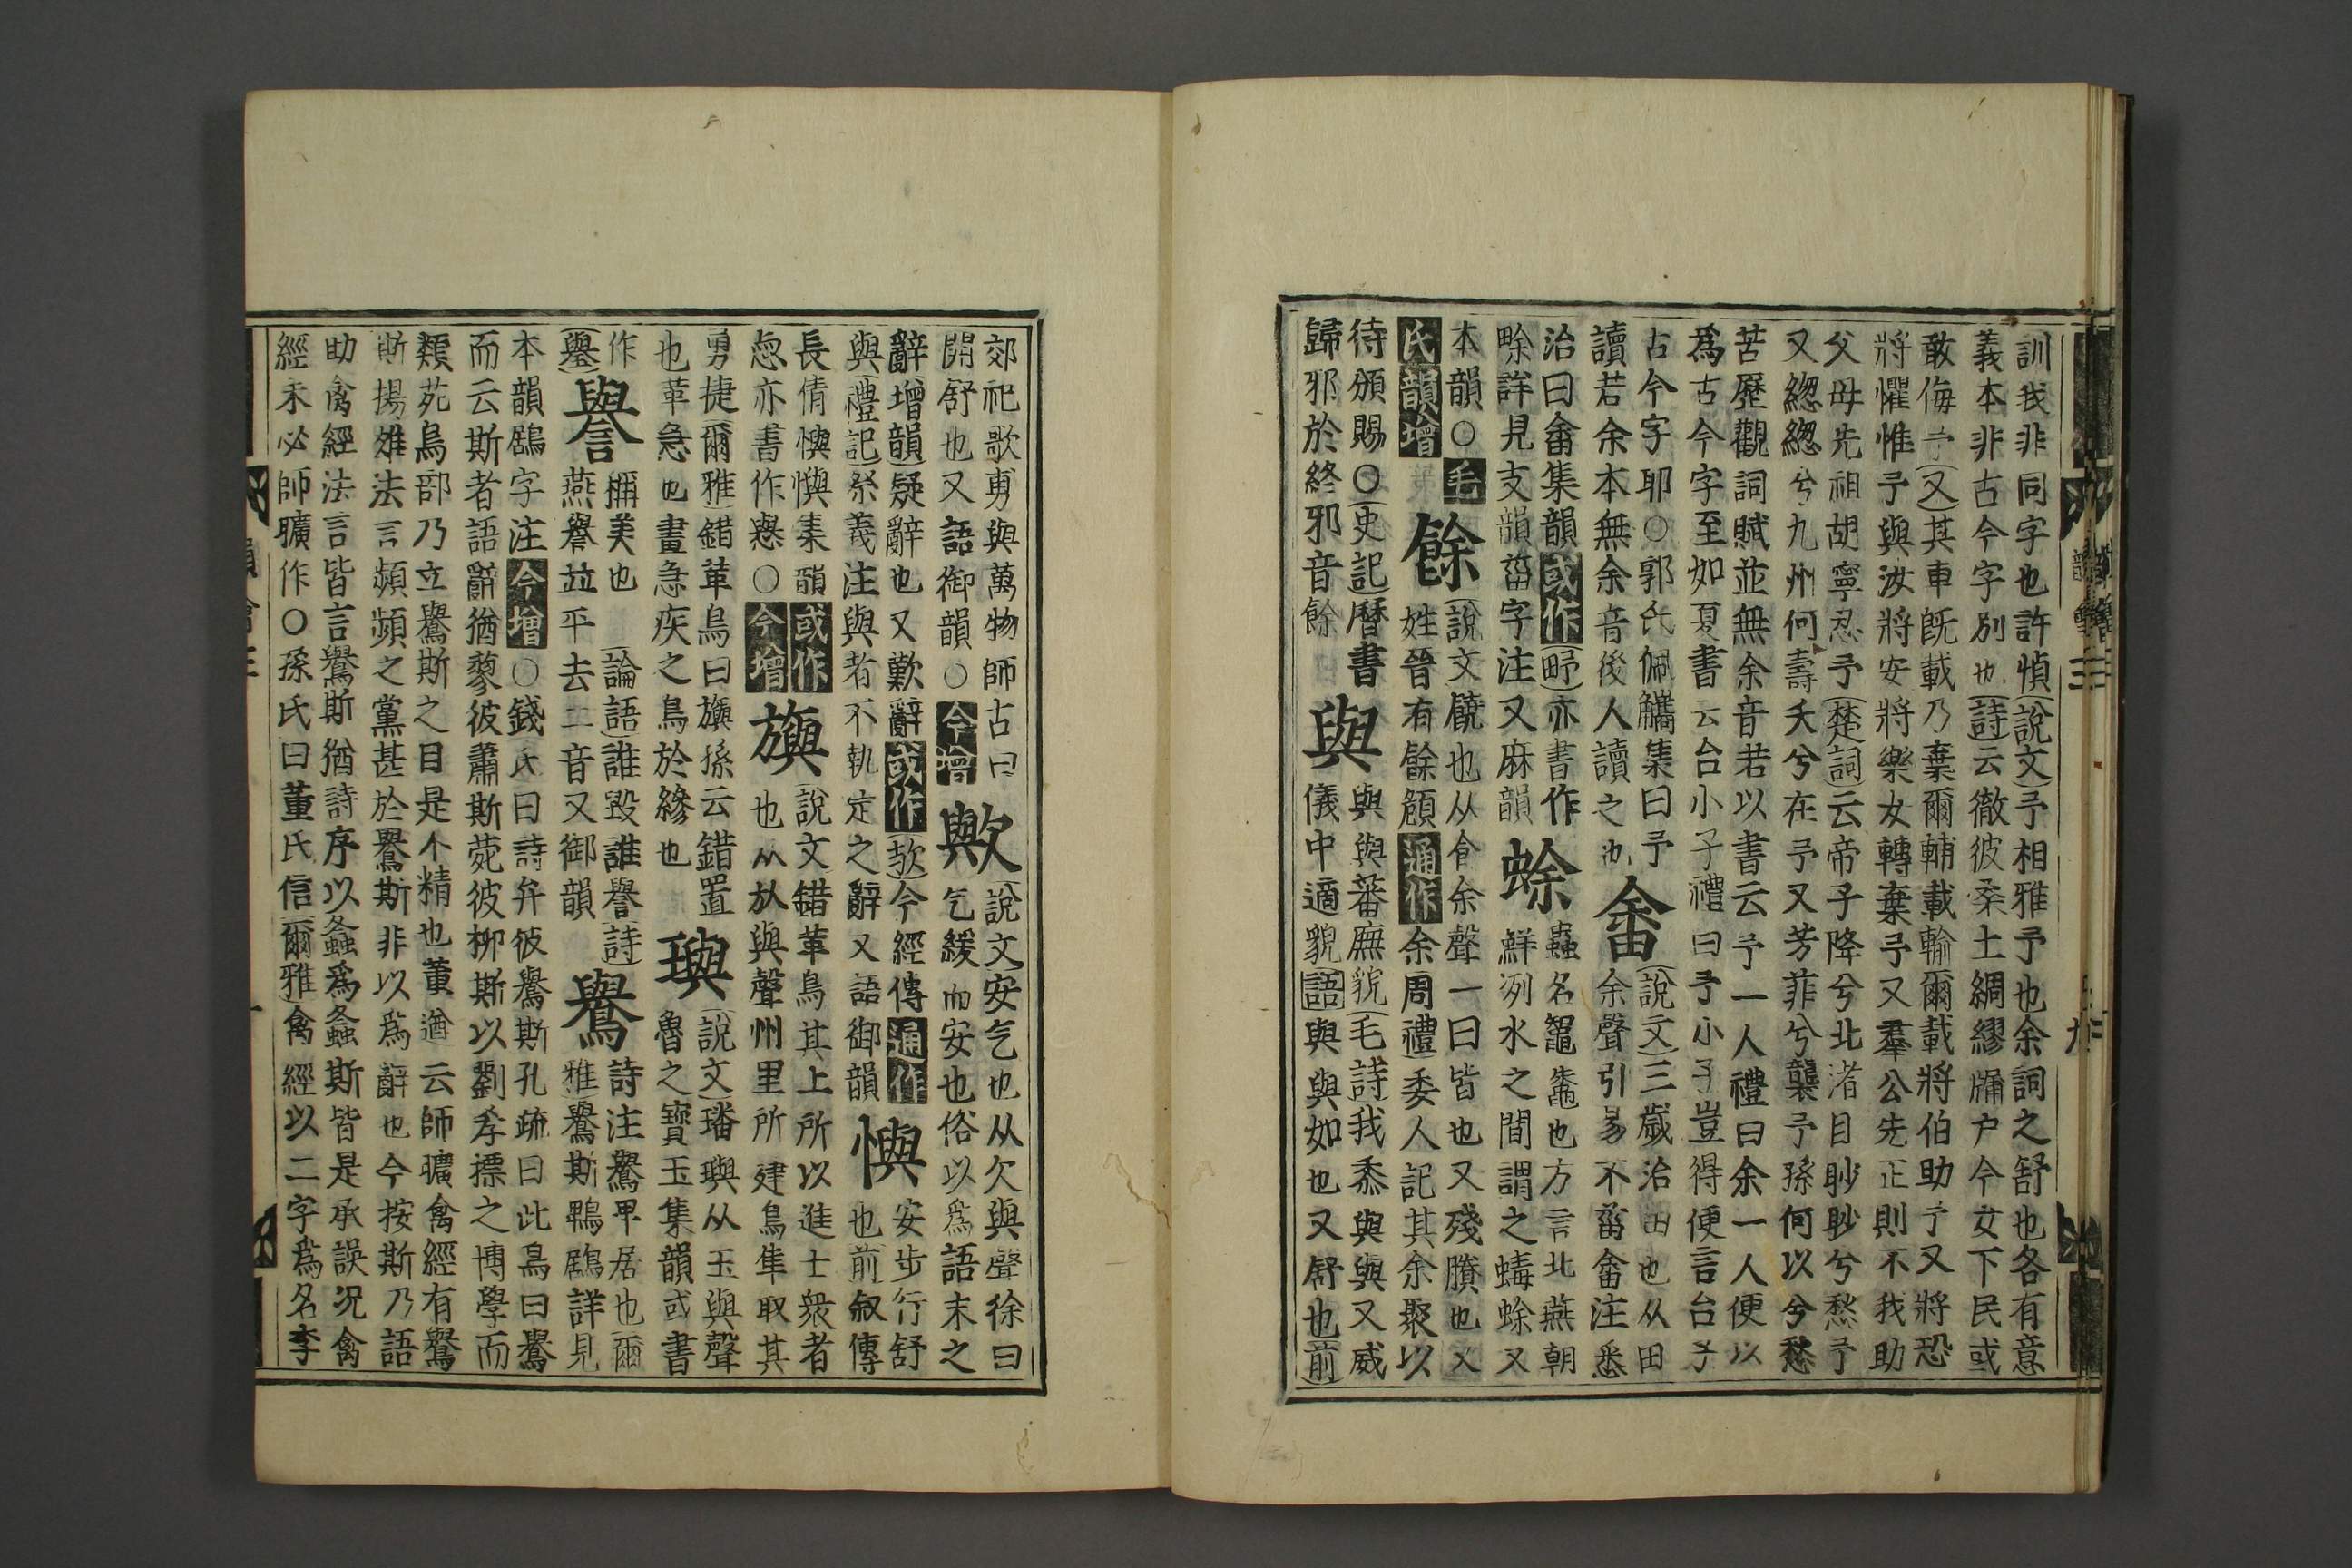 訓我非同字也許慎說文予相推予也余詞之舒也各有意
義本非古今字別也詩云徹彼桑土綢繆牖户今女下民或
敢侮予又其車既載乃棄爾輔載輸爾載將伯助予又將恐
將懼惟予與汝將安將樂女轉棄予又羣公先正則不我助
父母先祖胡寧忍予楚詞云帝子降兮北渚目眇眇兮愁予
又緫緫兮九州何壽夭兮在予又芳菲兮襲予孫何以兮愁
苦歷觀詞賦並無余音若以書云予一人禮曰余一人便以
爲古今字至如夏書云台小子禮曰予小子豈得便言台予
古今字耶○郭氏佩觿集曰予
讀若余本無余音後人讀之也 畬 說文三歲治田也从田
余聲引易不菑畬注悉
治曰畬集韻或作㽣亦書作
畭詳見支韻菑字注又麻韻 蜍 蟲名鼅鼄也方言北燕朝
鮮洌水之間謂之蝳蜍又
本韻○毛
氏韻增 餘 說文饒也从食余聲一曰皆也又殘賸也又
姓晉有餘頠通作余周禮委人記其余聚以
待頒賜○史記曆書
歸邪於終邪音餘 與 與與蕃廡貌毛詩我黍與與又威
儀中適貌語與與如也又舒也前
郊祀歌旉與萬物師古曰
開舒也又語御韻○今增 歟 說文安气也从欠與聲徐曰
气緩而安也俗以爲語末之
辭增韻疑辭也又歎辭或作㰤今經傳通作
與禮記祭義注與者不執定之辭又語御韻 懙 安步行舒
也前叙傳
長倩懙懙集韻或作
㥚亦書作㦛○今增 旟 說文錯革鳥其上所以進士衆者
也从㫃與聲州里所建鳥隼取其
勇捷爾雅錯革鳥曰旟孫云錯置
也革急也畫急疾之鳥於縿也 璵 說文璠璵从玉與聲
魯之寶玉集韻或書
作
璺 譽 稱美也論語誰毀誰譽詩
燕譽並平去二音又御韻 鸒 詩注鸒卑居也爾
雅鸒斯鵯鶋詳見
本韻鶋字注今增○錢氏曰詩弁彼鸒斯孔疏曰此鳥曰鸒
而云斯者語辭猶蓼彼蕭斯菀彼柳斯以劉孝摽之博學而
類苑鳥部乃立鸒斯之目是不精也董逌云師曠禽經有鸒
斯揚雄法言頻頻之黨甚於鸒斯非以爲辭也今按斯乃語
助禽經法言皆言鸒斯猶詩序以螽爲螽斯皆是承誤况禽
經未必師曠作○孫氏曰董氏信爾雅禽經以二字爲名李